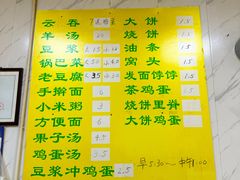 云吞 大饼 1.5
羊汤 烧饼 1.5
豆浆 油条 1.5
锅巴菜 窝头 1.5
老豆腐 发面饽饽 1.5
手擀面 6 茶鸡蛋
小米粥 3 烧饼里脊
方便面 6 大饼鸡蛋
果子汤 4.5
鸡蛋汤 3.5
豆浆冲鸡蛋 2.5
早5:30~中1:00